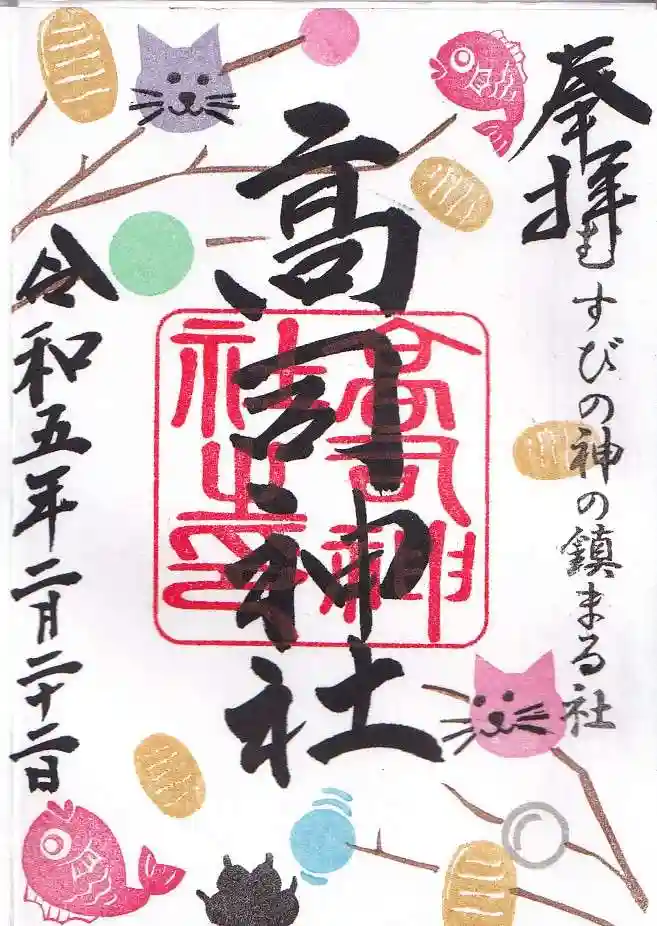 奉拝
むすびの神の鎮まる社
高司神社
高司神
社之印
令和五年二月二十二日